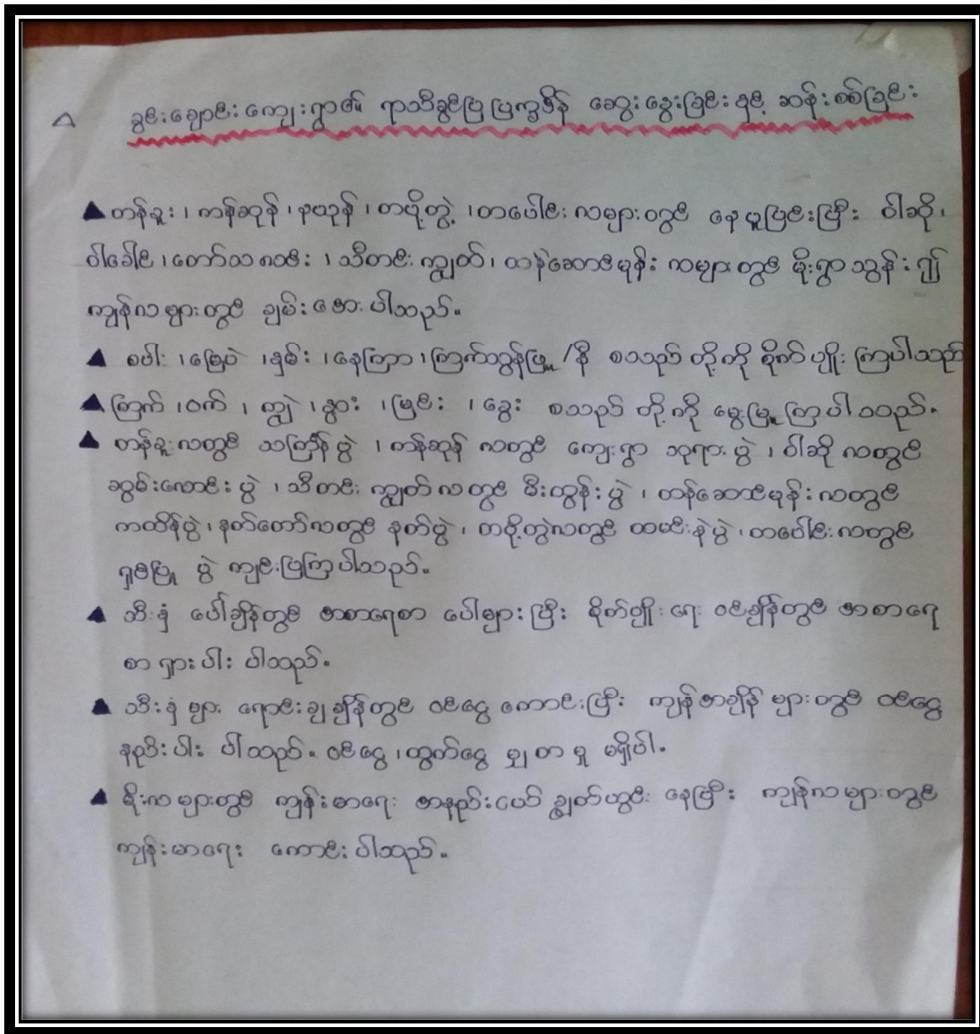 ခွင်းချောင်းကျေးရွာ၏ ရာသီခွင်ပြ ပြက္ခဒိန် ဆွေးနွေးခြင်း နှင့် ဆန်းစစ်ခြင်း
▲ တန်ခူး ၊ ကန်ဆုန် ၊ နယုန် ၊ တပို့တွဲ ၊ တပေါင်း လများတွင် နေပူပြင်းပြီး ဝါဆို ၊
ဝါခေါင် ၊ တော်သလင်း ၊ သီတင်း ကျွတ် ၊ တန်ဆောင်မုန်း လများ တွင် မိုးရွာ သွန်း ၍
ကျန်လ များ တွင် ချမ်း အေး ပါသည်။
▲ စပါး ၊ မြေပဲ ၊ နှမ်း ၊ နေကြာ ၊ ကြက်သွန်ဖြူ /နီ စသည် တို့ကို စိုက်ပျိုး ကြပါသည်
▲ ကြက် ၊ ဝက် ၊ ကျွဲ ၊ နွား ၊ မြင်း ၊ ခွေး စသည် တို့ကို မွေးမြူ ကြပါ သည်။
▲ တန်ခူးလတွင် သင်္ကြန် ပွဲ ၊ ကန်ဆုန် လတွင် ကျေးရွာ ဘုရား ပွဲ ၊ ဝါဆို လတွင်
ဆွမ်းလောင်း ပွဲ ၊ သီတင်း ကျွတ် လတွင် မီးထွန်း ပွဲ ၊ တန်ဆောင်မုန်း လတွင်
ကထိန်ပွဲ ၊ နတ်တော်လတွင် နတ်ပွဲ ၊ တပို့တွဲလတွင် ထမင်းနဲပွဲ ၊ တပေါင်းလတွင်
ရှင်ပြု ပွဲ ကျင်းပကြ ပါသည်။
▲ သီးနှံ ပေါ်ချိန်တွင် အစားရေစာ ပေါများ ပြီး စိုက်ပျိုး ရေး ဝင်ချိန်တွင် အစာရေ
စာ ရှားပါး ပါသည်။
▲ သီးနှံ များ ရောင်းချ ချိန်တွင် ဝင်ငွေ ကောင်းပြီး ကျန်အချိန် များတွင် ဝင်ငွေ
နည်းပါး ပါသည်။ ဝင်ငွေ ၊ ထွက်ငွေ မျှ တ မှု မရှိပါ။
▲ မိုးလ များတွင် ကျန်းမာရေး အနည်းငယ် ချွတ်ယွင်း နေပြီး ကျန်လ များတွင်
ကျန်းမာရေး ကောင်း ပါသည်။